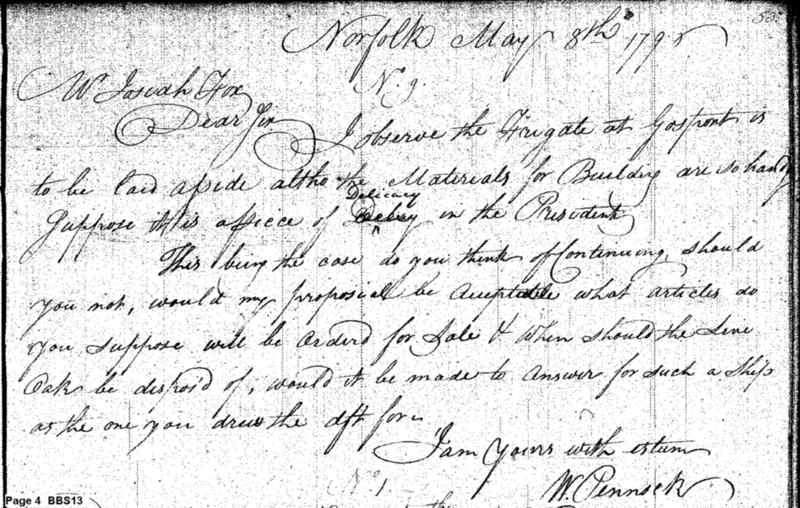 53.
Norfolk May 8th 179
Mr Josiah Fox
No. 9.
Dear Sir
I observe the Frigate at Gosport is
to be laid aside altho the Materials for Building are so handy
Suppose it is a piece of Delicacy in the President
This being the case do you think of Continuing, should
you not, would my proposial be Acceptable what articles do
you suppose will be orderd for Sale & when should the Live
Oak be dispos'd of, would it be made to answer for such a Ship
as the one you drew the dft for
I am Yours with esteem
W. Pennock
No. 1.
Page 4 BBS13